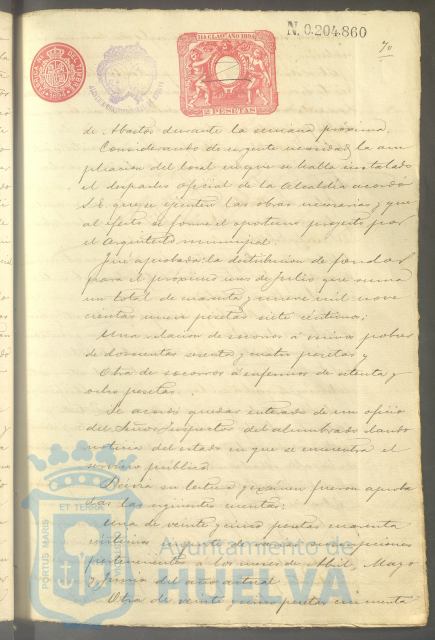 11ª CLASE AÑO 1894
N. 0.204.860
70
2 PESETAS
de Abastos durante la semana próxima.
Considerando de urgente necesidad la am
pliacion del local en que se halla instalado
el despacho oficial de la Alcaldia acordó
S.E. que se ejecuten las obras necesarias y que
al efecto se forme el oportuno proyecto por
el Arquitecto municipal.
Fué aprobada: la distribucion de fondos
para el próximo mes de Julio que suma
un total de cuarenta y nueve mil nove
cientas nueve pesetas siete céntimos;
Una relacion de socorros á vecinos pobres
de doscientas sesenta y cuatro pesetas y
Otra de socorros á enfermos de setenta y
ocho pesetas.
Se acordó quedar enterado de un oficio
del Señor Inspector del alumbrado dando
noticia del estado en que se encuentra el
servicio público.
Prévia su lectura y examen fueron aproba
das las siguientes cuentas:
Una de veinte y cinco pesetas cuarenta
céntimos importe de varias suscripciones
pertenecientes á los meses de Abril, Mayo
y Junio del año actual
Otra de veinte y cinco pesetas cincuenta
PORTUS MARIS
ET TERRÆ
Ayuntamiento de
HUELVA